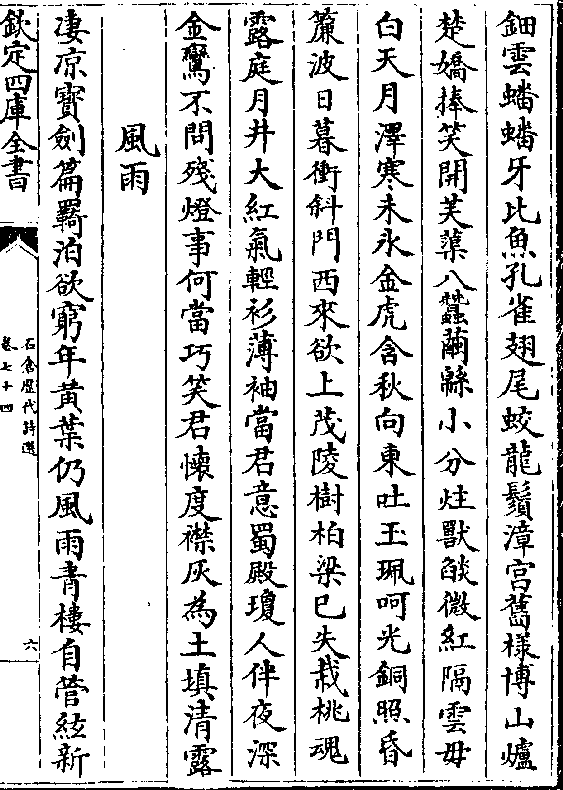 鈿雲蟠蟠牙比魚孔雀翅尾蛟龍鬚漳宫舊様博山爐
楚嬌捧笑開芙蕖八蠶繭緜小分炷獸燄微紅隔雲母
白天月澤寒未氷金虎含秋向東吐玉珮呵光銅照昏
簾波日暮衝斜門西來欲上茂陵樹柏梁已失栽桃魂
露庭月井大紅氣輕衫薄袖當君意蜀殿瓊人伴夜深
金鸞不問殘燈事何當巧笑君懐度襟灰為土填清露
風雨
凄凉寳劍篇羇泊欲窮年黄葉仍風雨青樓自管絃新
欽定四庫全書
石倉歴代詩選
卷七十四
六